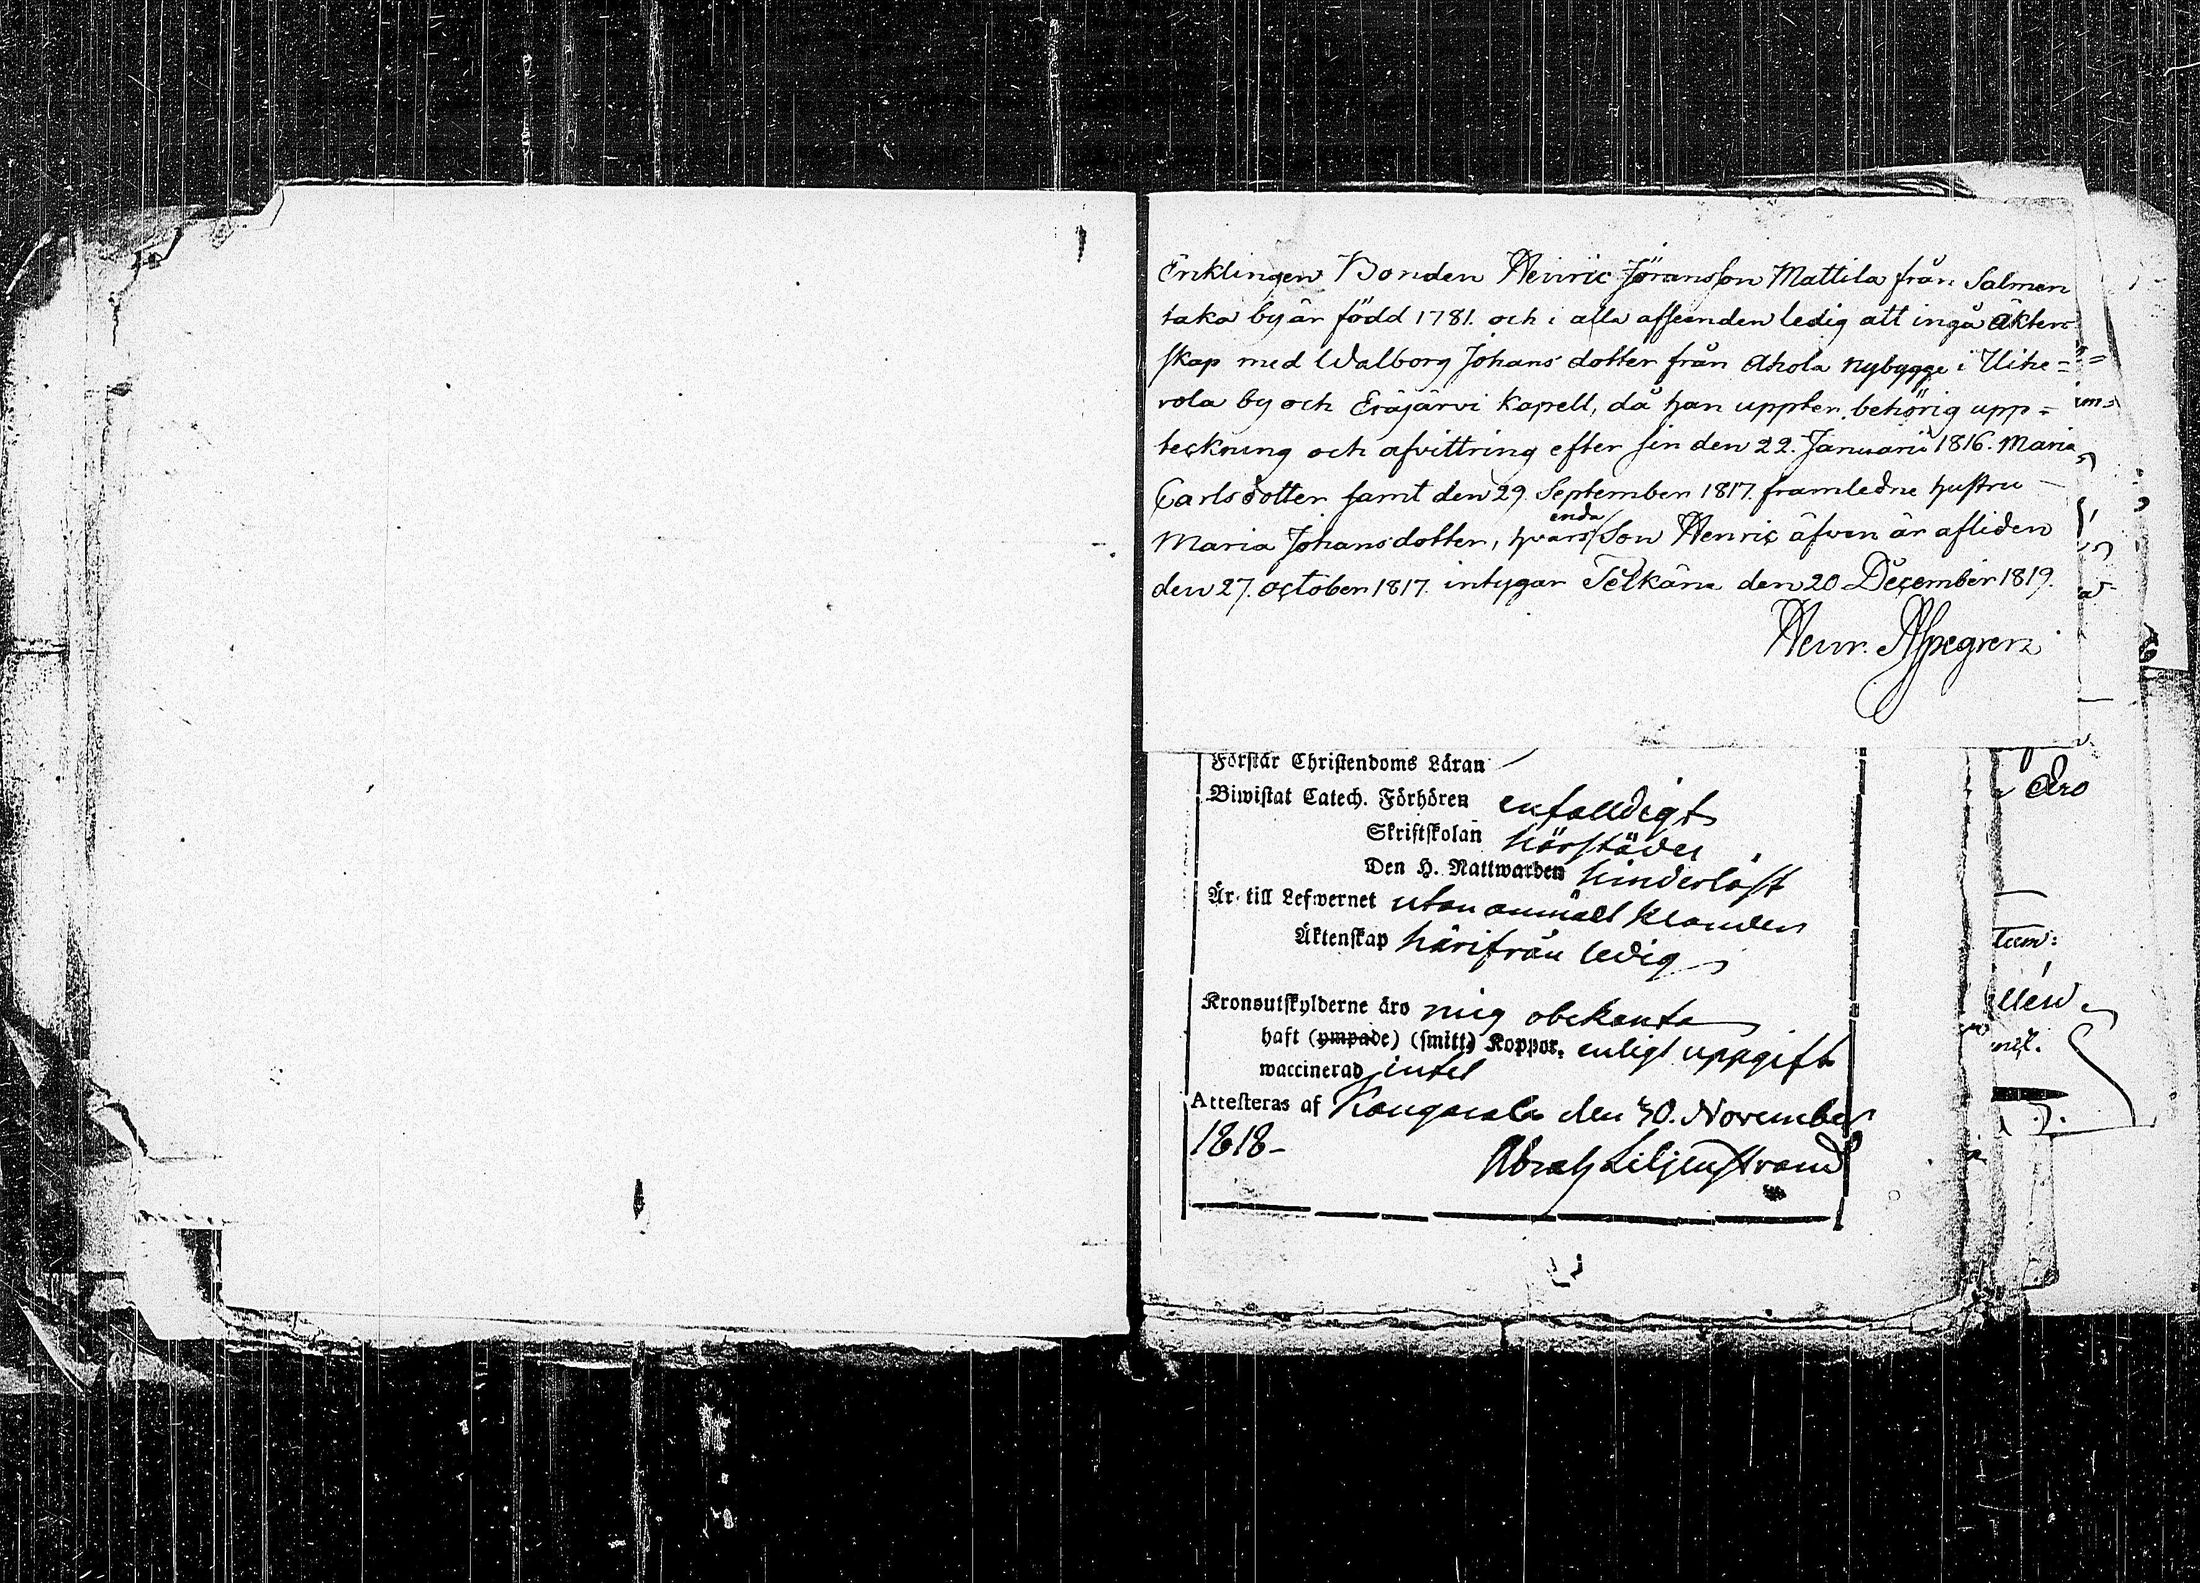 Enklingen Bonden Henric Jöransson Mattila från Salmen
taka by är född 1781. och i alla afseenden ledig att ingå Äkten
skap med Walborg Johans dotter från Ahola nybygge i Uihe=
rola by och Eräjärvi kapell, då han uppter behörig upp=
teckning och afvittring efter sin den 22. Januarii 1816. Maria
Carlsdotter samt den 29. September 1817. framledne hustru
Maria Johansdotter, hvars enda Son Henric äfven är afliden
den 27. october 1817. intygar Pelkäne den 20 December 1819.
Henr. Aspegren
Förstår Christendoms Läran
Biwistat Catech. Förhören enfalldigt
Skriftskolan härstädes
Den H. Nattwarden hinderlöst
Är till Lefwernet utan anmält klander
Äktenskap härifrån ledig
Kronoutskylderne äro mig obekanta
haft (ympade) (smitt) Koppor, enligt uppgift
waccinerad intet
Attesteras af Kangasala den 30. November
1818-
Abrah Liljenstrand
äro